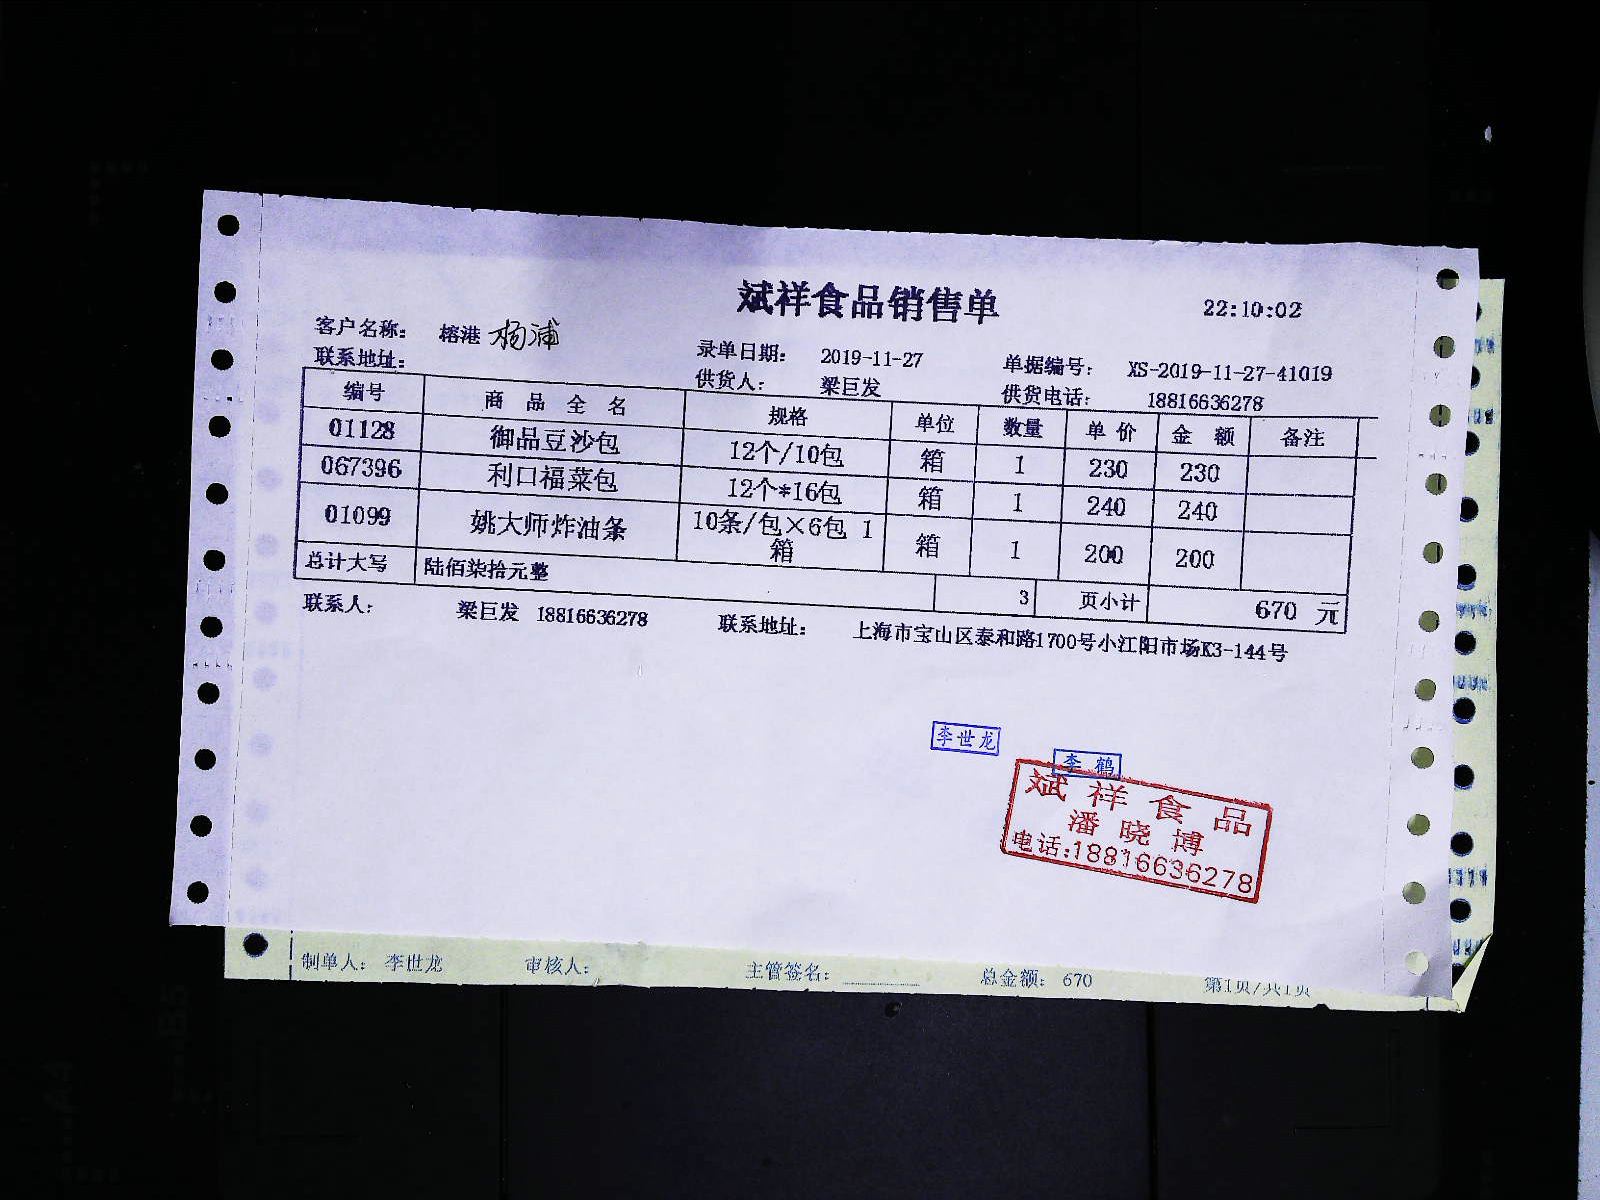 斌祥食品销售单
22:10:02
客户名称： 榕港 杨浦
录单日期： 2019-11-27 单据编号： XS-2019-11-27-41019
联系地址： 供货人： 梁巨发 供货电话： 18816636278
编号 商品全名 规格 单位 数量 单价 金额 备注
01128 御品豆沙包 12个/10包 箱 1 230 230
067396 利口福菜包 12个*16包 箱 1 240 240
01099 姚大师炸油条 10条/包×6包 1箱 箱 1 200 200
总计大写 陆佰柒拾元整 3 页小计 670 元
联系人： 梁巨发 18816636278 联系地址： 上海市宝山区泰和路1700号小江阳市场K3-144号
李世龙
李鹤
斌祥食品
潘晓博
电话:18816636278
制单人： 李世龙 审核人： 主管签名： 总金额： 670 第1页/共1页